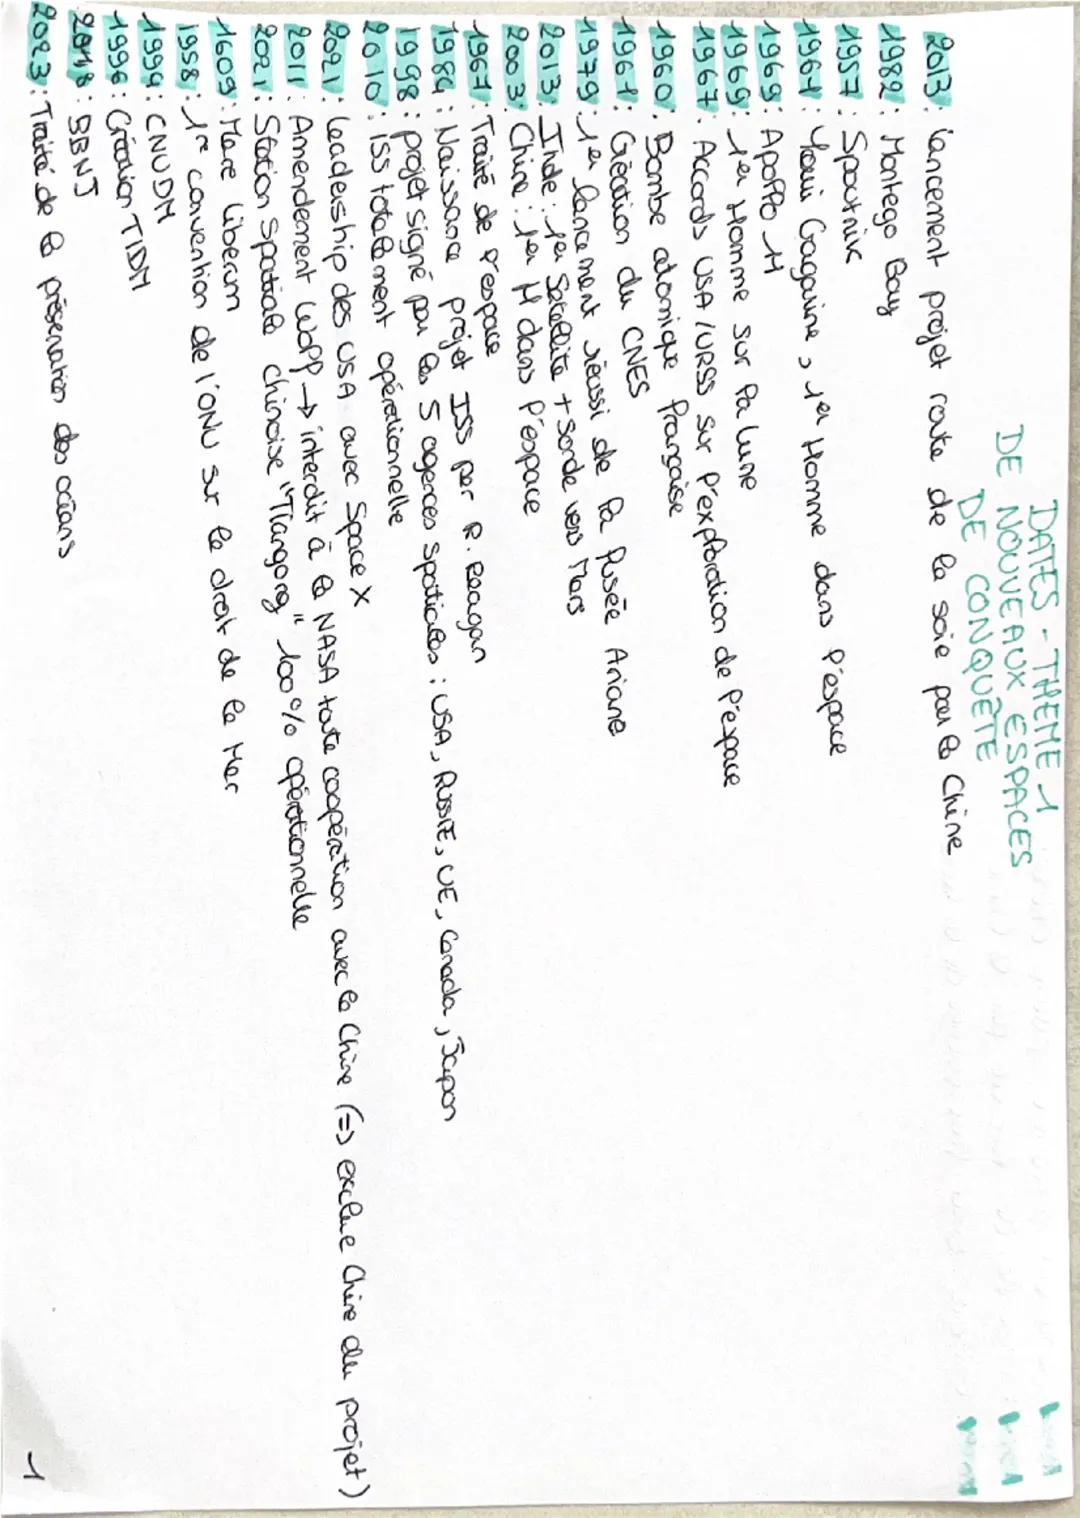 DATES - THEME 1
DE NOUVEAUX ESPACES
DE CONQUÊTE
2013: lancement projet route de la soie par la Chine
1982: Montego Bay
1957: Spoutnik
1961: Youri Gagarine, 1er Homme dans l'espace
1969: Apollo 11
1969: 1er Homme sur la lune
1967: Accords USA/URSS sur l'exploration de l'espace
1960: Bombe atomique française
1961: Création du CNES
1979: 1er lancement réussi de la fusée Ariane
2013: Inde: 1er Satellite + sonde vers Mars
2003: Chine: 1er H dans l'espace
1967: Traité de l'espace
1984: Naissance projet ISS par R. Reagan
1998: projet signé par les 5 agences spatiales: USA, RUSSIE, UE, Canada, Japon
2010: ISS totalement opérationnelle
2021: Leadership des USA avec Space X
2011: Amendement Wolf → interdit à la NASA toute coopération avec la Chine (=> exclue Chine du projet)
2021: Station spatiale chinoise "Tiangong" 100% opérationnelle
1609: Mare Liberum
1958: 1re convention de l'ONU sur le droit de la Mer
1994: CNUDM
1996: Création TIDM
2018: BBNJ
2023: Traité de la préservation des océans
1